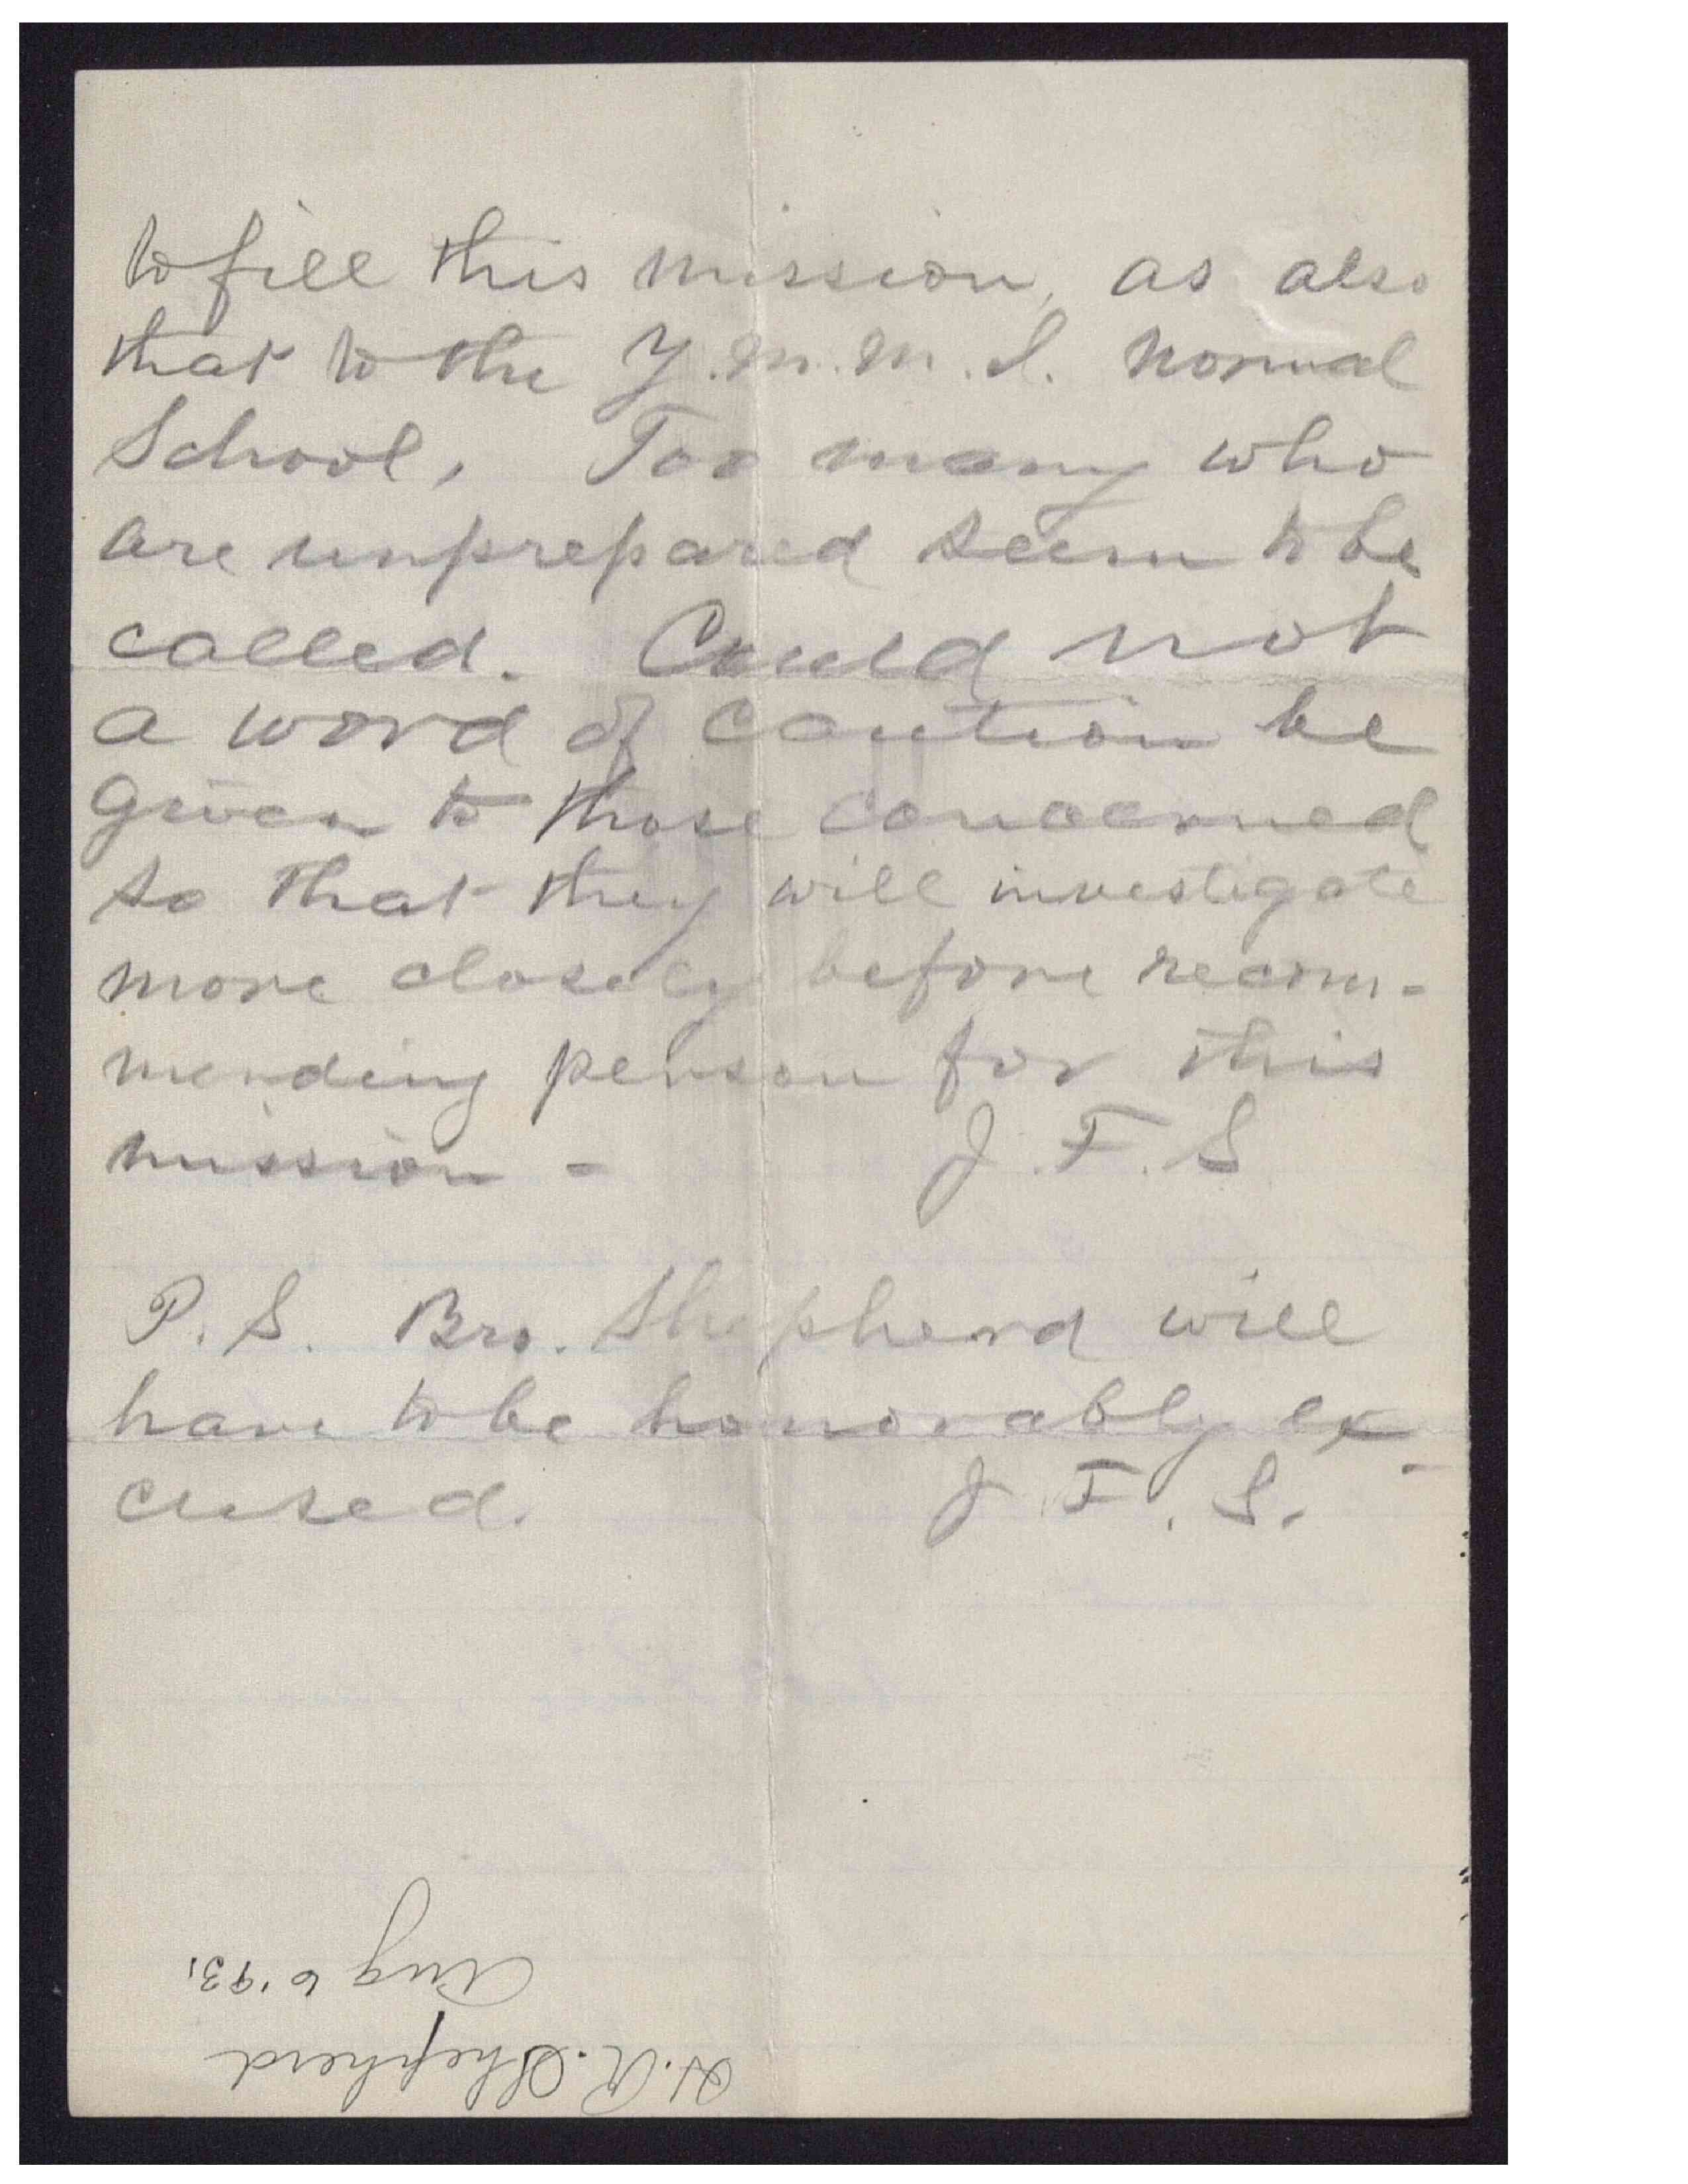 to fill this mission, as also
that to the Y.M.M.I. Normal
School, Too many who
are unprepared seem to be
called. Could not
a word of caution be
given to those concerned
so that they will investigate
more closely before recom-
mending person for this
mission - J.F.S
P.S. Bro. Shepherd will
have to be honorably ex-
cused. J F. S.
H.R. Shepherd
Aug 6 '93,